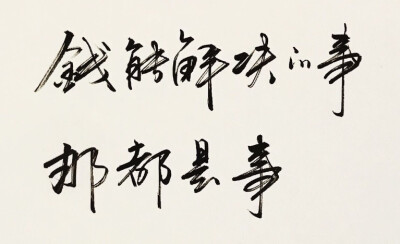 錢能解决的事
那都是事